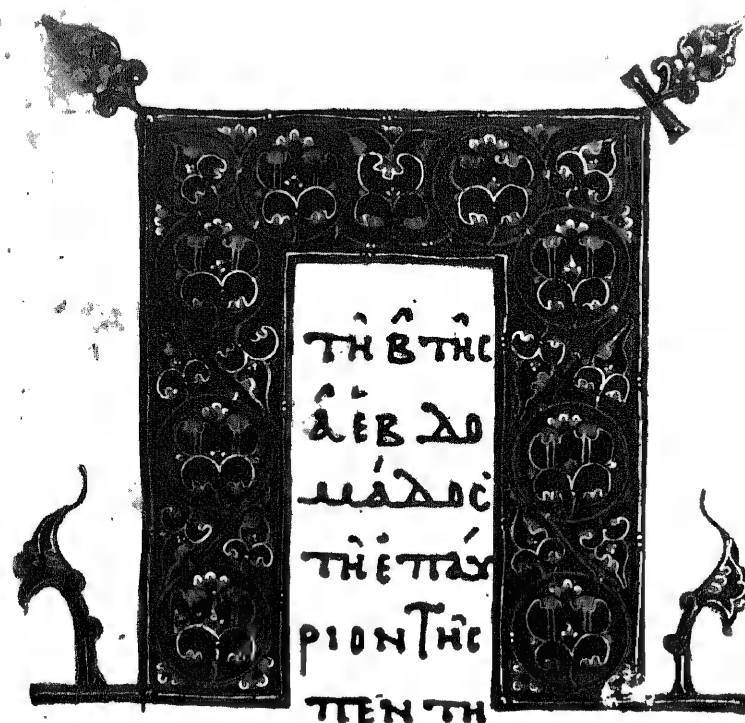 τῆ β̂ τῆς
ᾶ ἑβδο
μάδος
τῆ ἐπαύ
ριον τῆς
πεντη